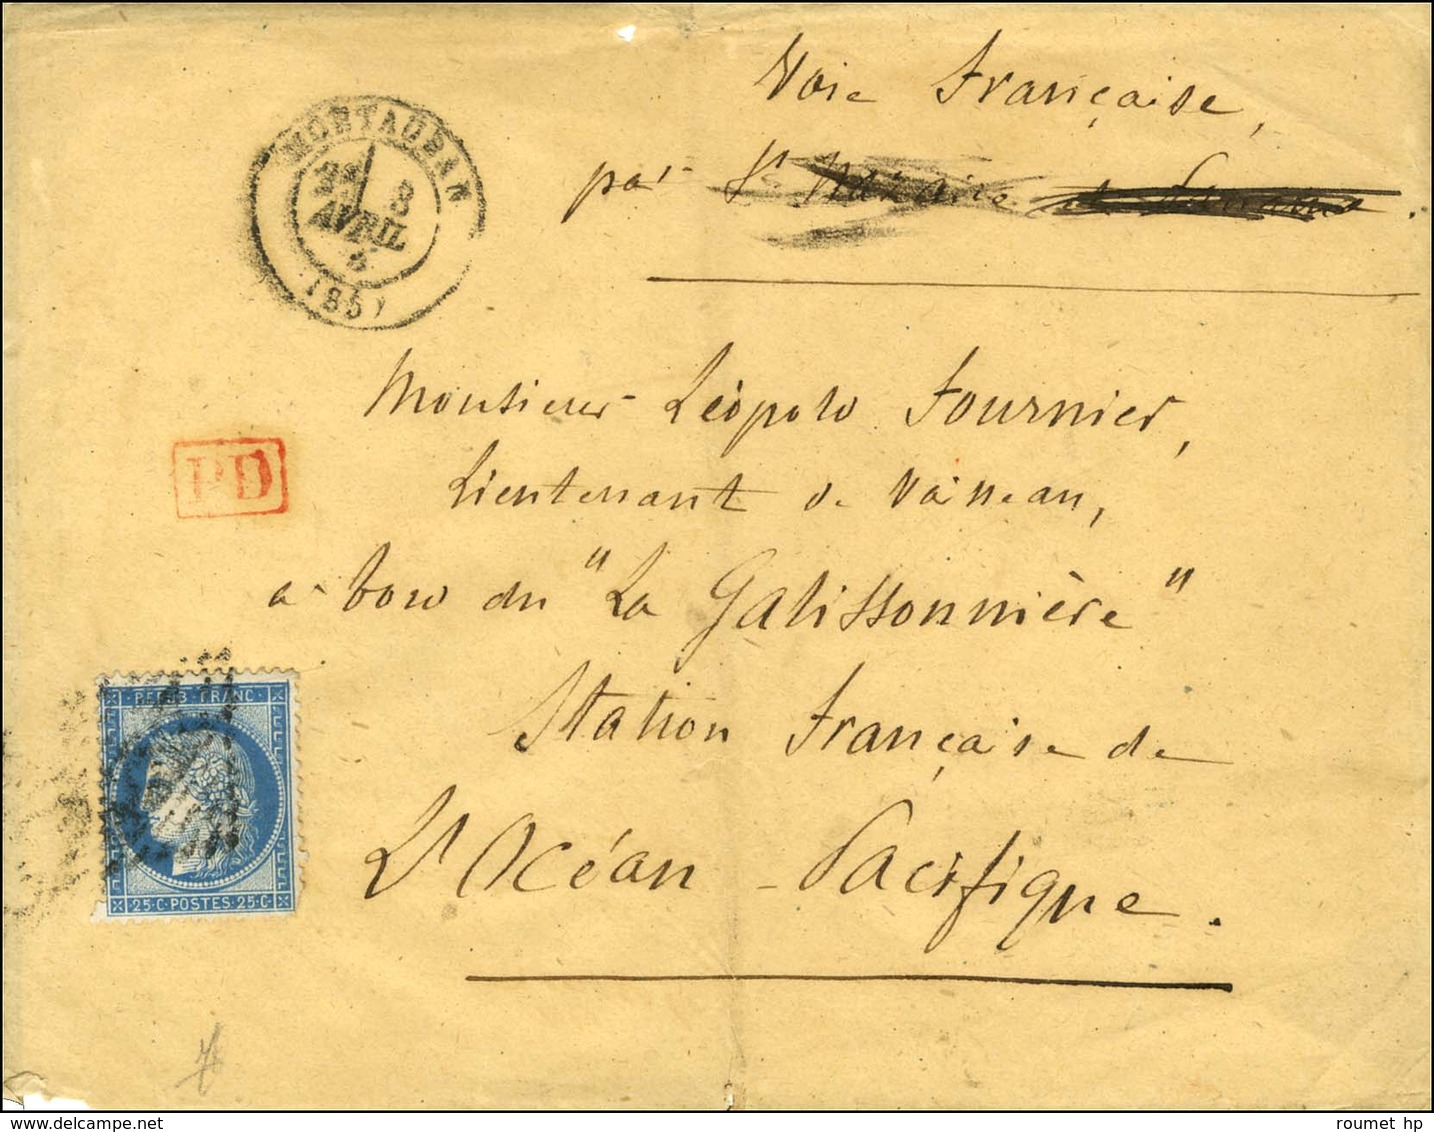 Voie Française,
par St Nazaire
MONTAUBAN
3
AVRIL
Monsieur Léopold Fournier,
Lieutenant de Vaisseau,
PD
a bord du "La Galissonnière"
REPUB · FRANC ·
Station Française de
L'Océan - Pacifique.
· 25 · C · POSTES · 25 · C ·
roumet hp